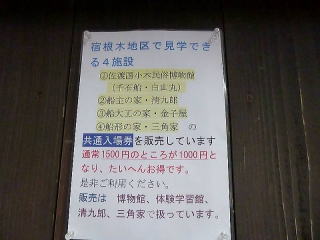 宿根木地区で見学でき
る４施設
①佐渡国小木民俗博物館
(千石船・白山丸)
②船主の家・清九郎
③船大工の家・金子屋
④船形の家・三角家　の
共通入場券を販売しています
通常1500円のところが1000円と
なり、たいへんお得です。
是非ご利用ください。
販売は　博物館、体験学習館、
清九郎、三角家で扱っています。